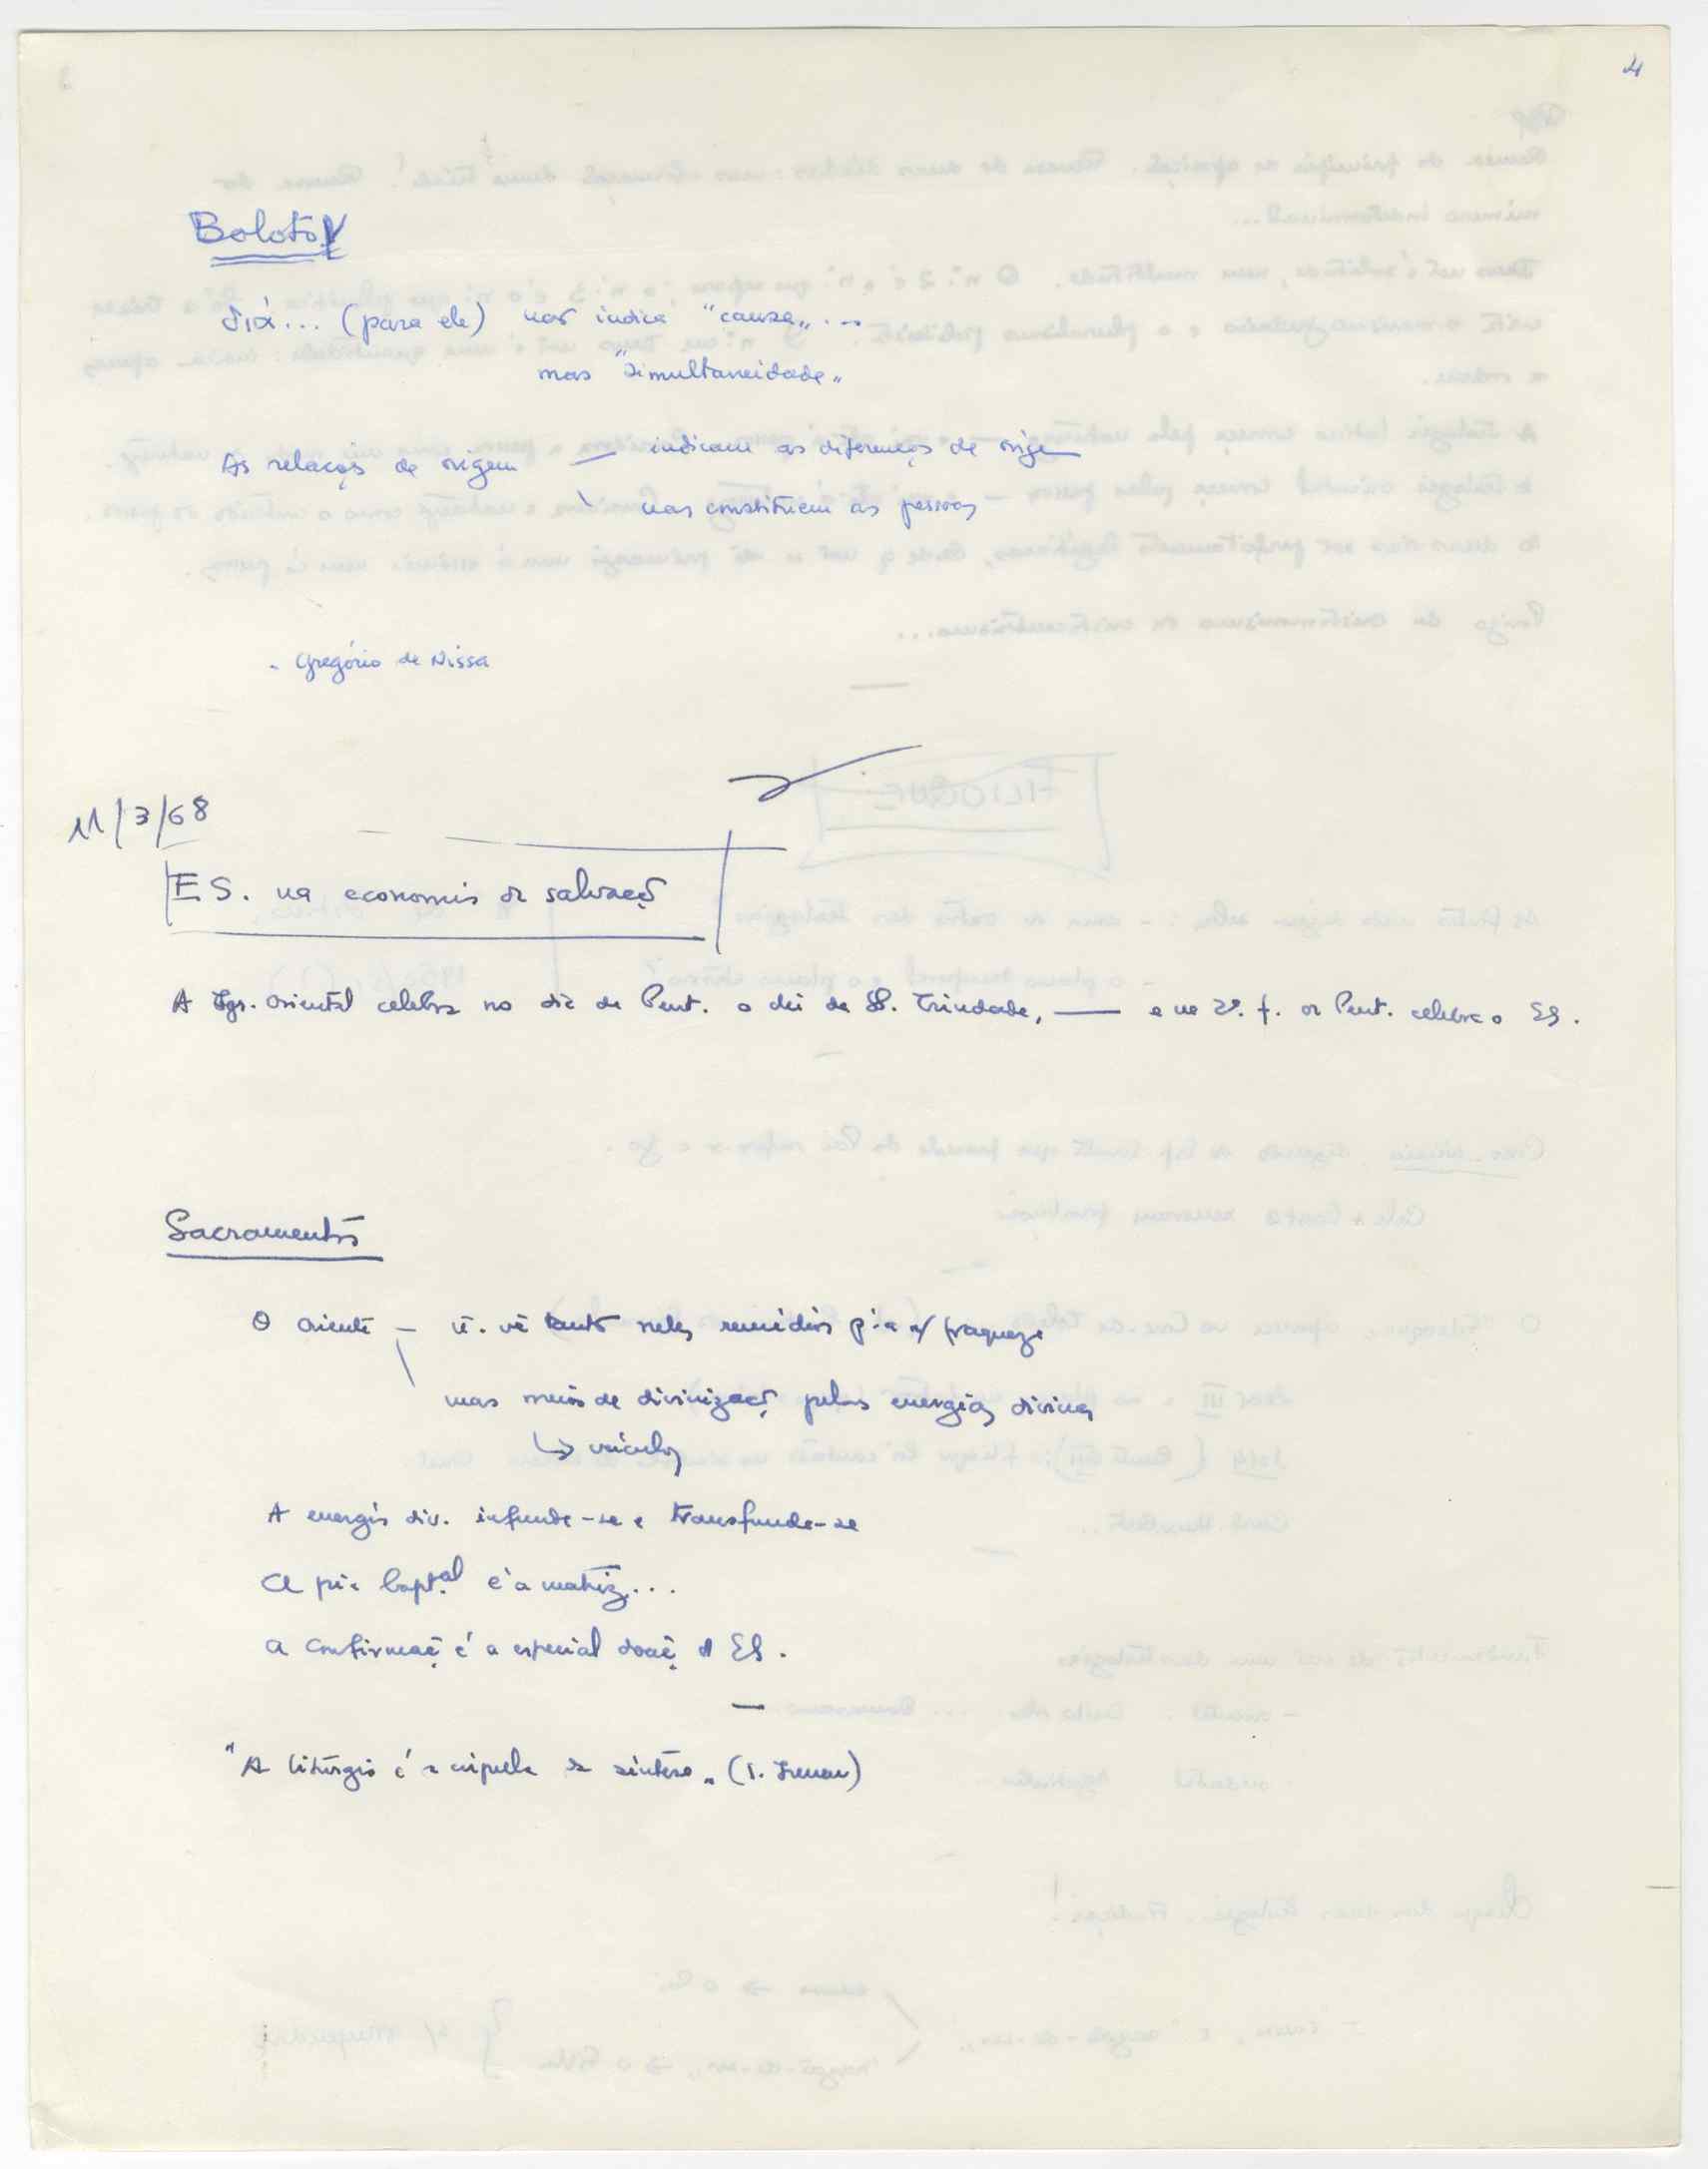 4
Bolotov
διά... (para ele) não indica "causa"...
mas "simultaneidade"
As relações de origem — indicam as diferenças de origem
não constituem as pessoas
- Gregório de Nissa
11/3/68
E S. na economia da salvação
A Igr. Oriental celebra no dia de Pent. o dia da SS. Trindade, — e na 2ª. f. de Pent. celebra o ES.
Sacramentos
O Oriente — ñ. vê tanto neles remédios p.ª a/ fraqueza
mas meios de divinização pelas energias divinas
↳ veículos
A energia div. infunde-se e transfunde-se
A pia bapt.al é a matriz...
A confirmação é a especial doação do ES.
—
"A liturgia é a cúpula da síntese" (S. Irineu)